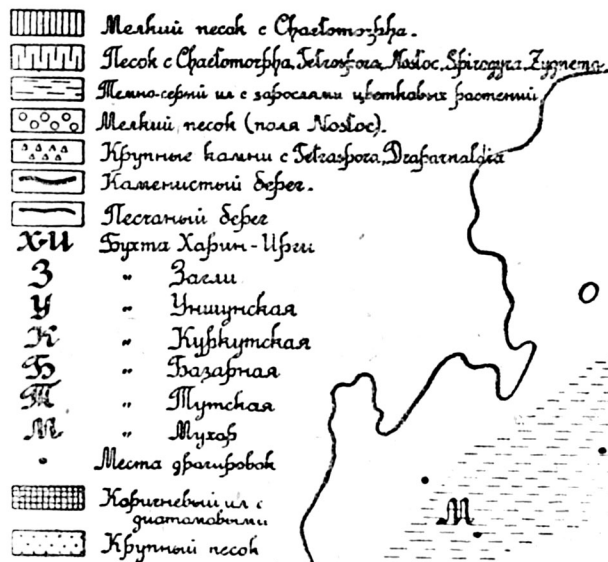 Мелкий песок с Chaetomorpha.
Песок с Chaetomorpha, Tetrospora, Nostoc, Spirogyra, Zygnema
Темно-серый ил с зарослями цветковых растений
Мелкий песок (поля Nostoc).
Крупные камни с Tetraspora, Draparnaldia
Каменистый берег.
Песчаный берег
Х-И Бухта Харин-Ирги
З " Загли
У " Уншунская
К " Куркутская
Б " Базарная
Т " Тутская
М " Мухор
Места драгировок
Коричневый ил с
диатомовыми
Крупный песок
М